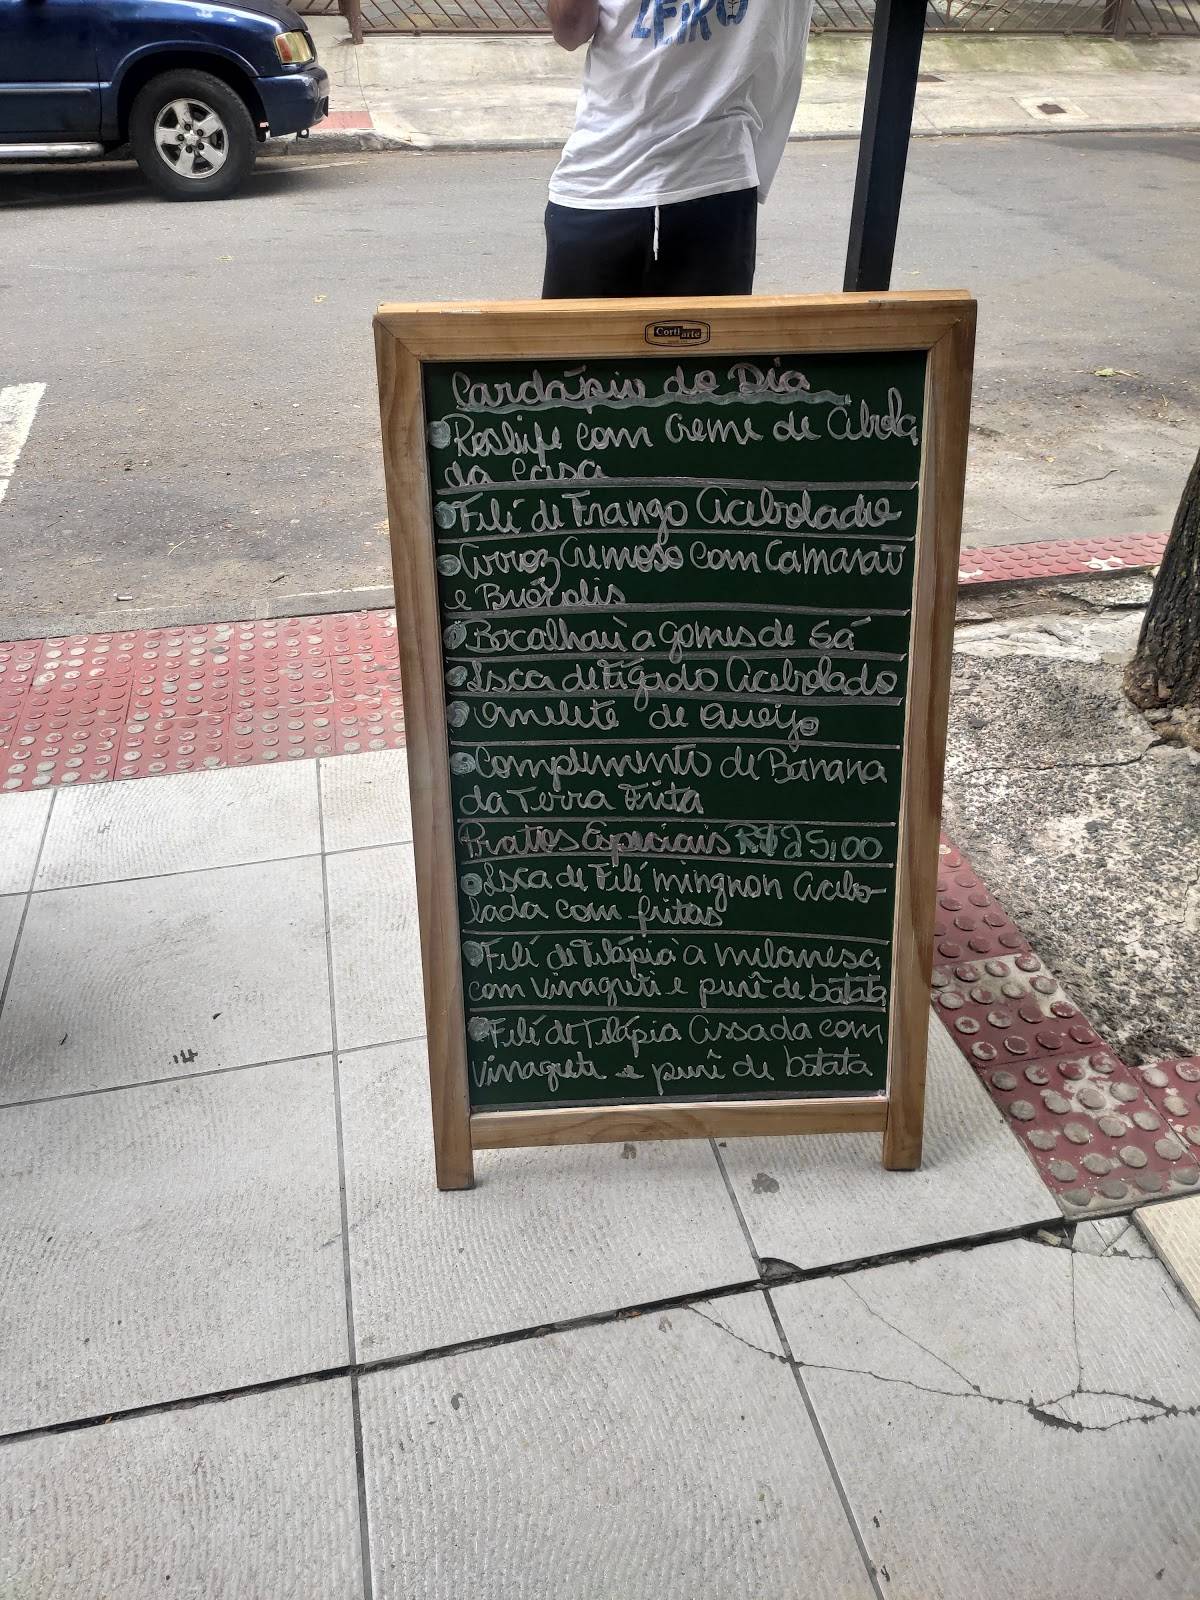 ZEIRO
Cortiarte
Cardápio do Dia
Rosbife com Creme de Cebola
da Casa
Filé de Frango Acebolado
Arroz Cremoso com Camarão
e Brócolis
Bacalhau à Gomes de Sá
Isca de Fígado Acebolado
Omelete de Queijo
Complemento de Banana
da Terra Frita
Pratos Especiais R$25,00
Isca de Filé mingnon Acebo-
lada com fritas
Filé de Tilápia à milanesa
com vinagreti e purê de batata
Filé de Tilápia Assada com
vinagreti e purê de batata